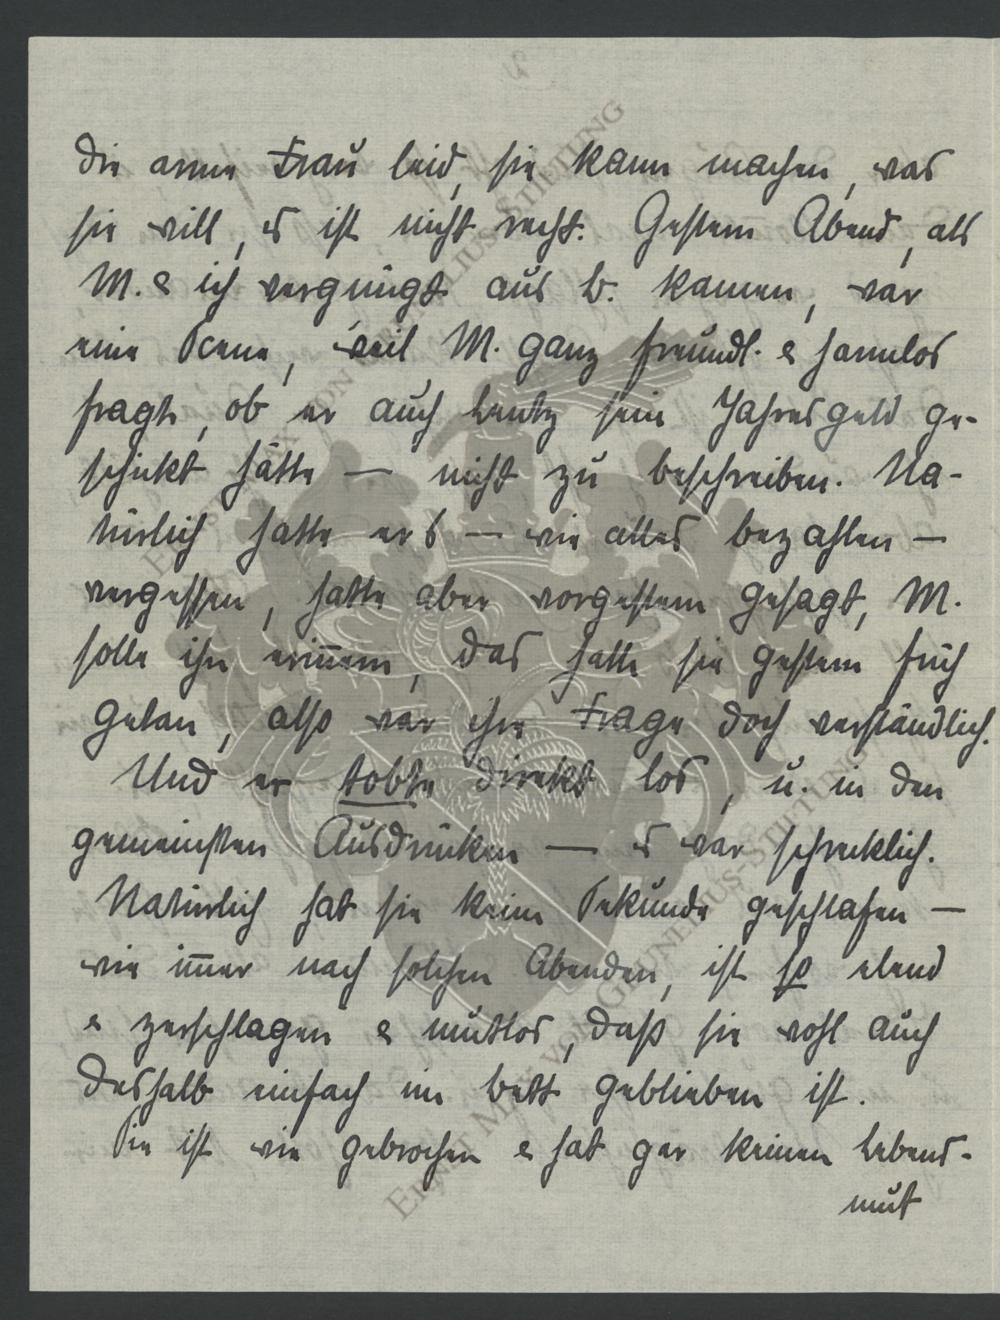 die arme Frau leid, sie kann machen, was
sie will, es ist nicht recht. Gestern Abend, als
M. & ich vergnügt aus B. kamen, war
eine Scene, weil M. ganz freundl. & harmlos
fragte, ob er auch Lentz sein Jahresgeld ge-
schickt hätte — nicht zu beschreiben. Na-
türlich hatte er's — wie alles bezahlen —
vergessen, hatte aber vorgestern gesagt, M.
solle ihn erin̅ern, das hatte sie gestern früh
getan, also war ihre Frage doch verständlich.
Und er tobte direkt los, u. in den
gemeinsten Ausdrücken — es war schrecklich.
Natürlich hat sie keine Sekunde geschlafen —
wie im̅er nach solchen Abenden, ist so elend
& zerschlagen & mutlos, daß sie wohl auch
deshalb einfach im Bett geblieben ist.
Sie ist wie gebrochen & hat gar keinen Lebens-
mut